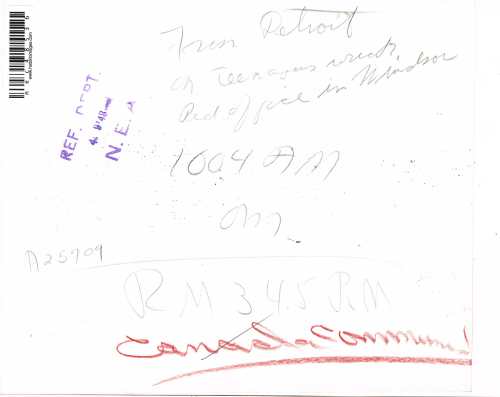 From Detroit
on teenagers wreck
Red office in Windsor
REF. DEPT.
N. E. A
1004 AM
A25909
RM 345 RM
Canada Commun